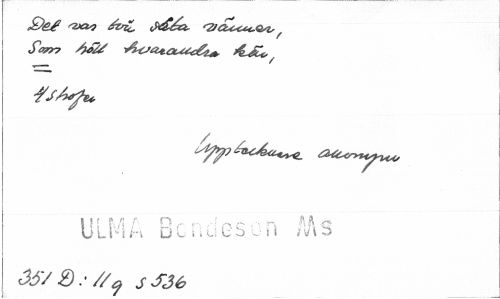 Det var två såta vänner,
Som höll hvarandra kär,
=
4 strofer
Upptecknare anonym
ULMA Bondeson Ms
351 D: 11 q s 536